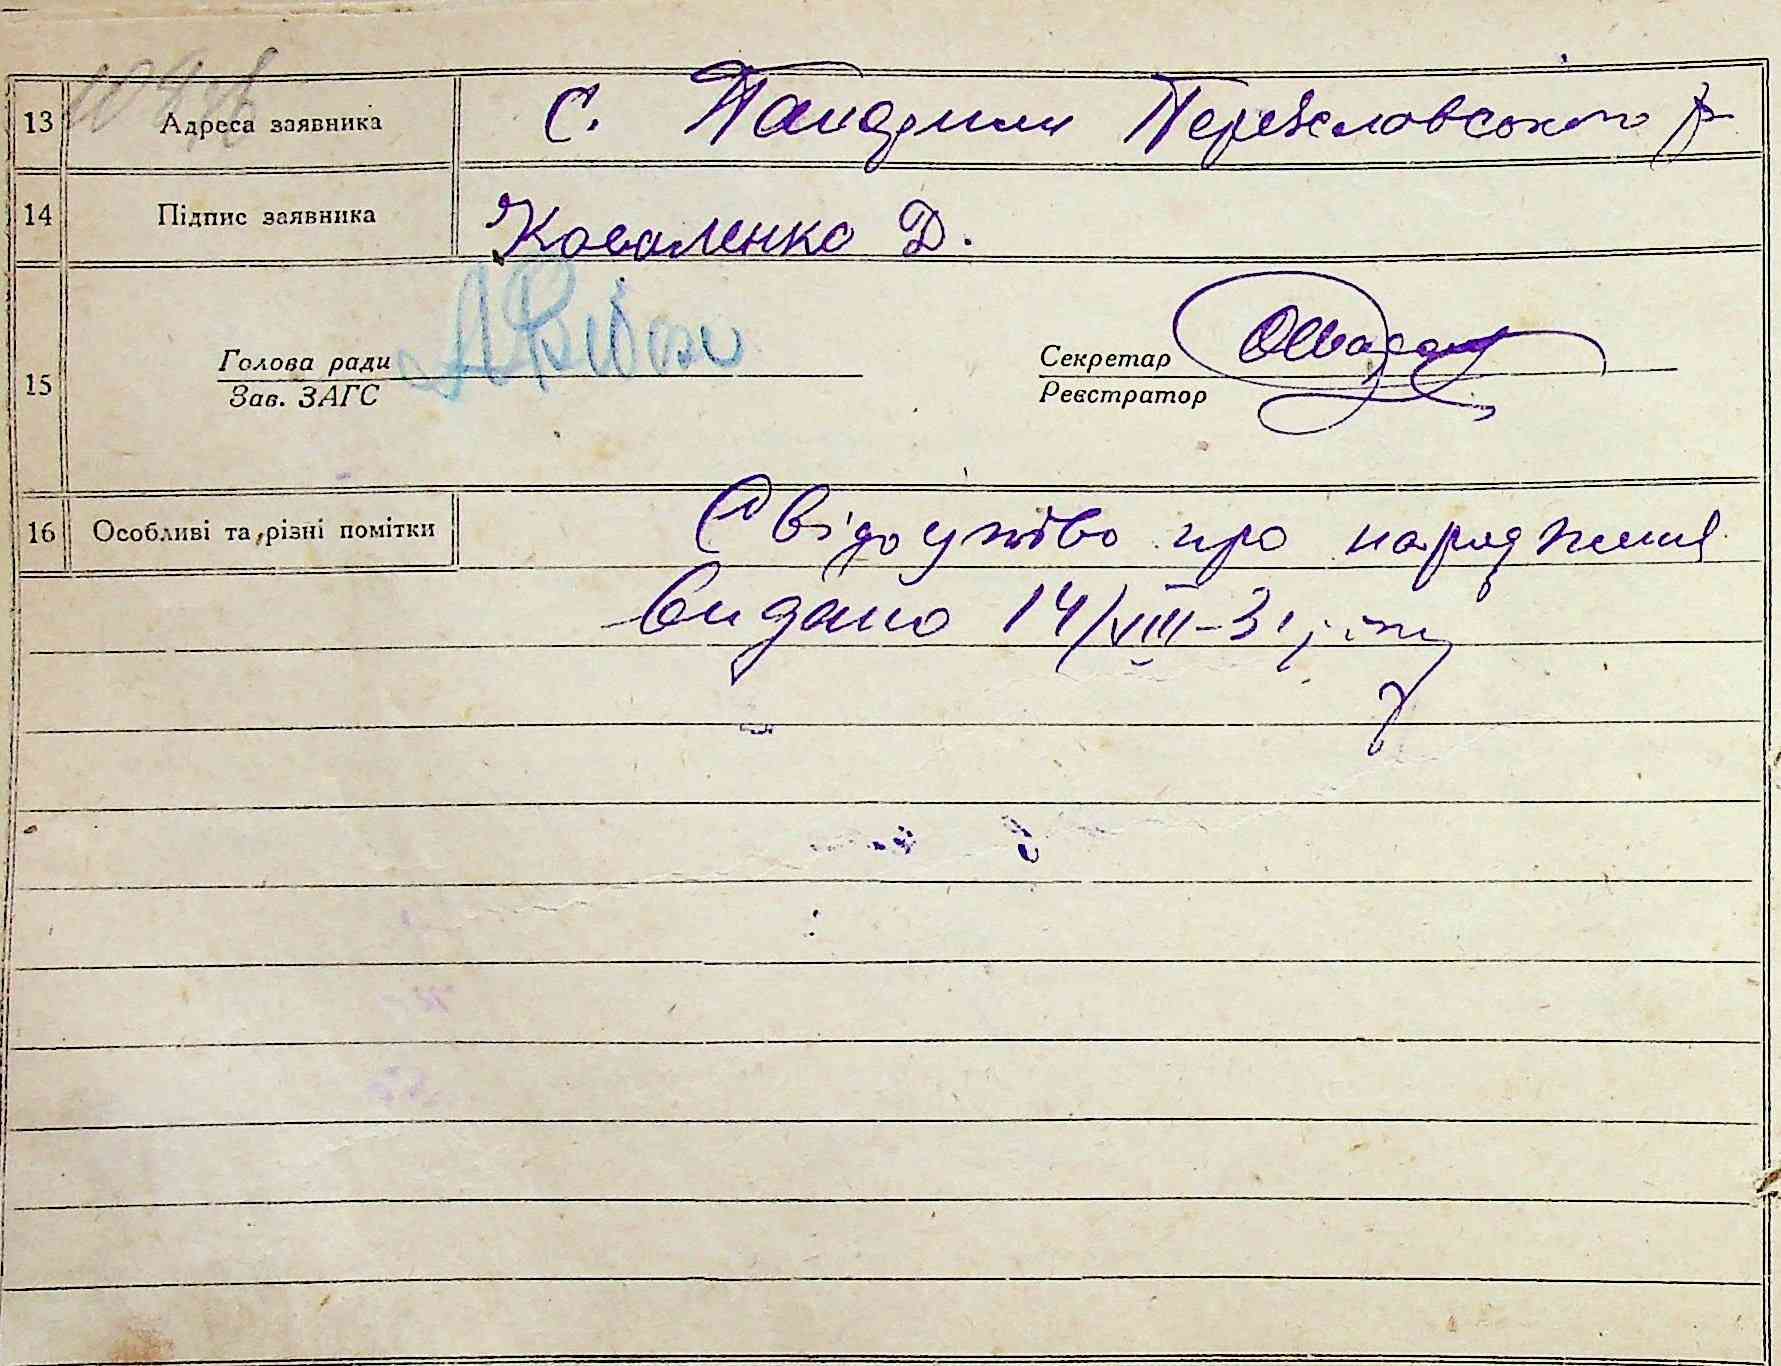 13 Адреса заявника С. Пандили Переяславського р.
14 Підпис заявника Коваленко Д.
15 Голова ради Секретар
Зав. ЗАГС Реєстратор
16 Особливі та різні помітки Свідоцтво про народження
видано 14/VIII-31 року